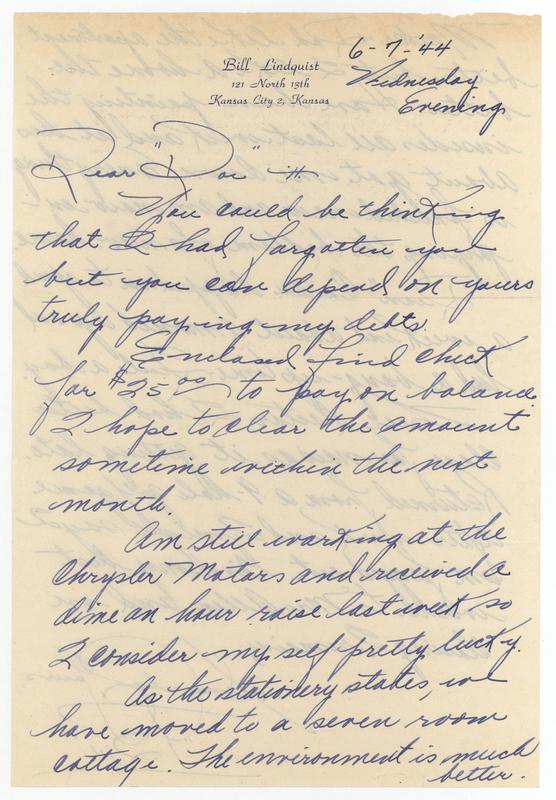 Bill Lindquist
121 North 13th
Kansas City 2, Kansas
6-7-'44
Wednesday
Evening
Dear "Doc" -
You could be thinking
that I had forgotten you
but you can depend on yours
truly paying my debts.
Enclosed find check
for $25.00 to pay on balance.
I hope to clear the amount
sometime within the next
month.
Am still working at the
Chrysler Motors and received a
dime an hour raise last week so
I consider my self pretty lucky.
As the stationery states, we
have moved to a seven room
cottage. The environment is much
better.